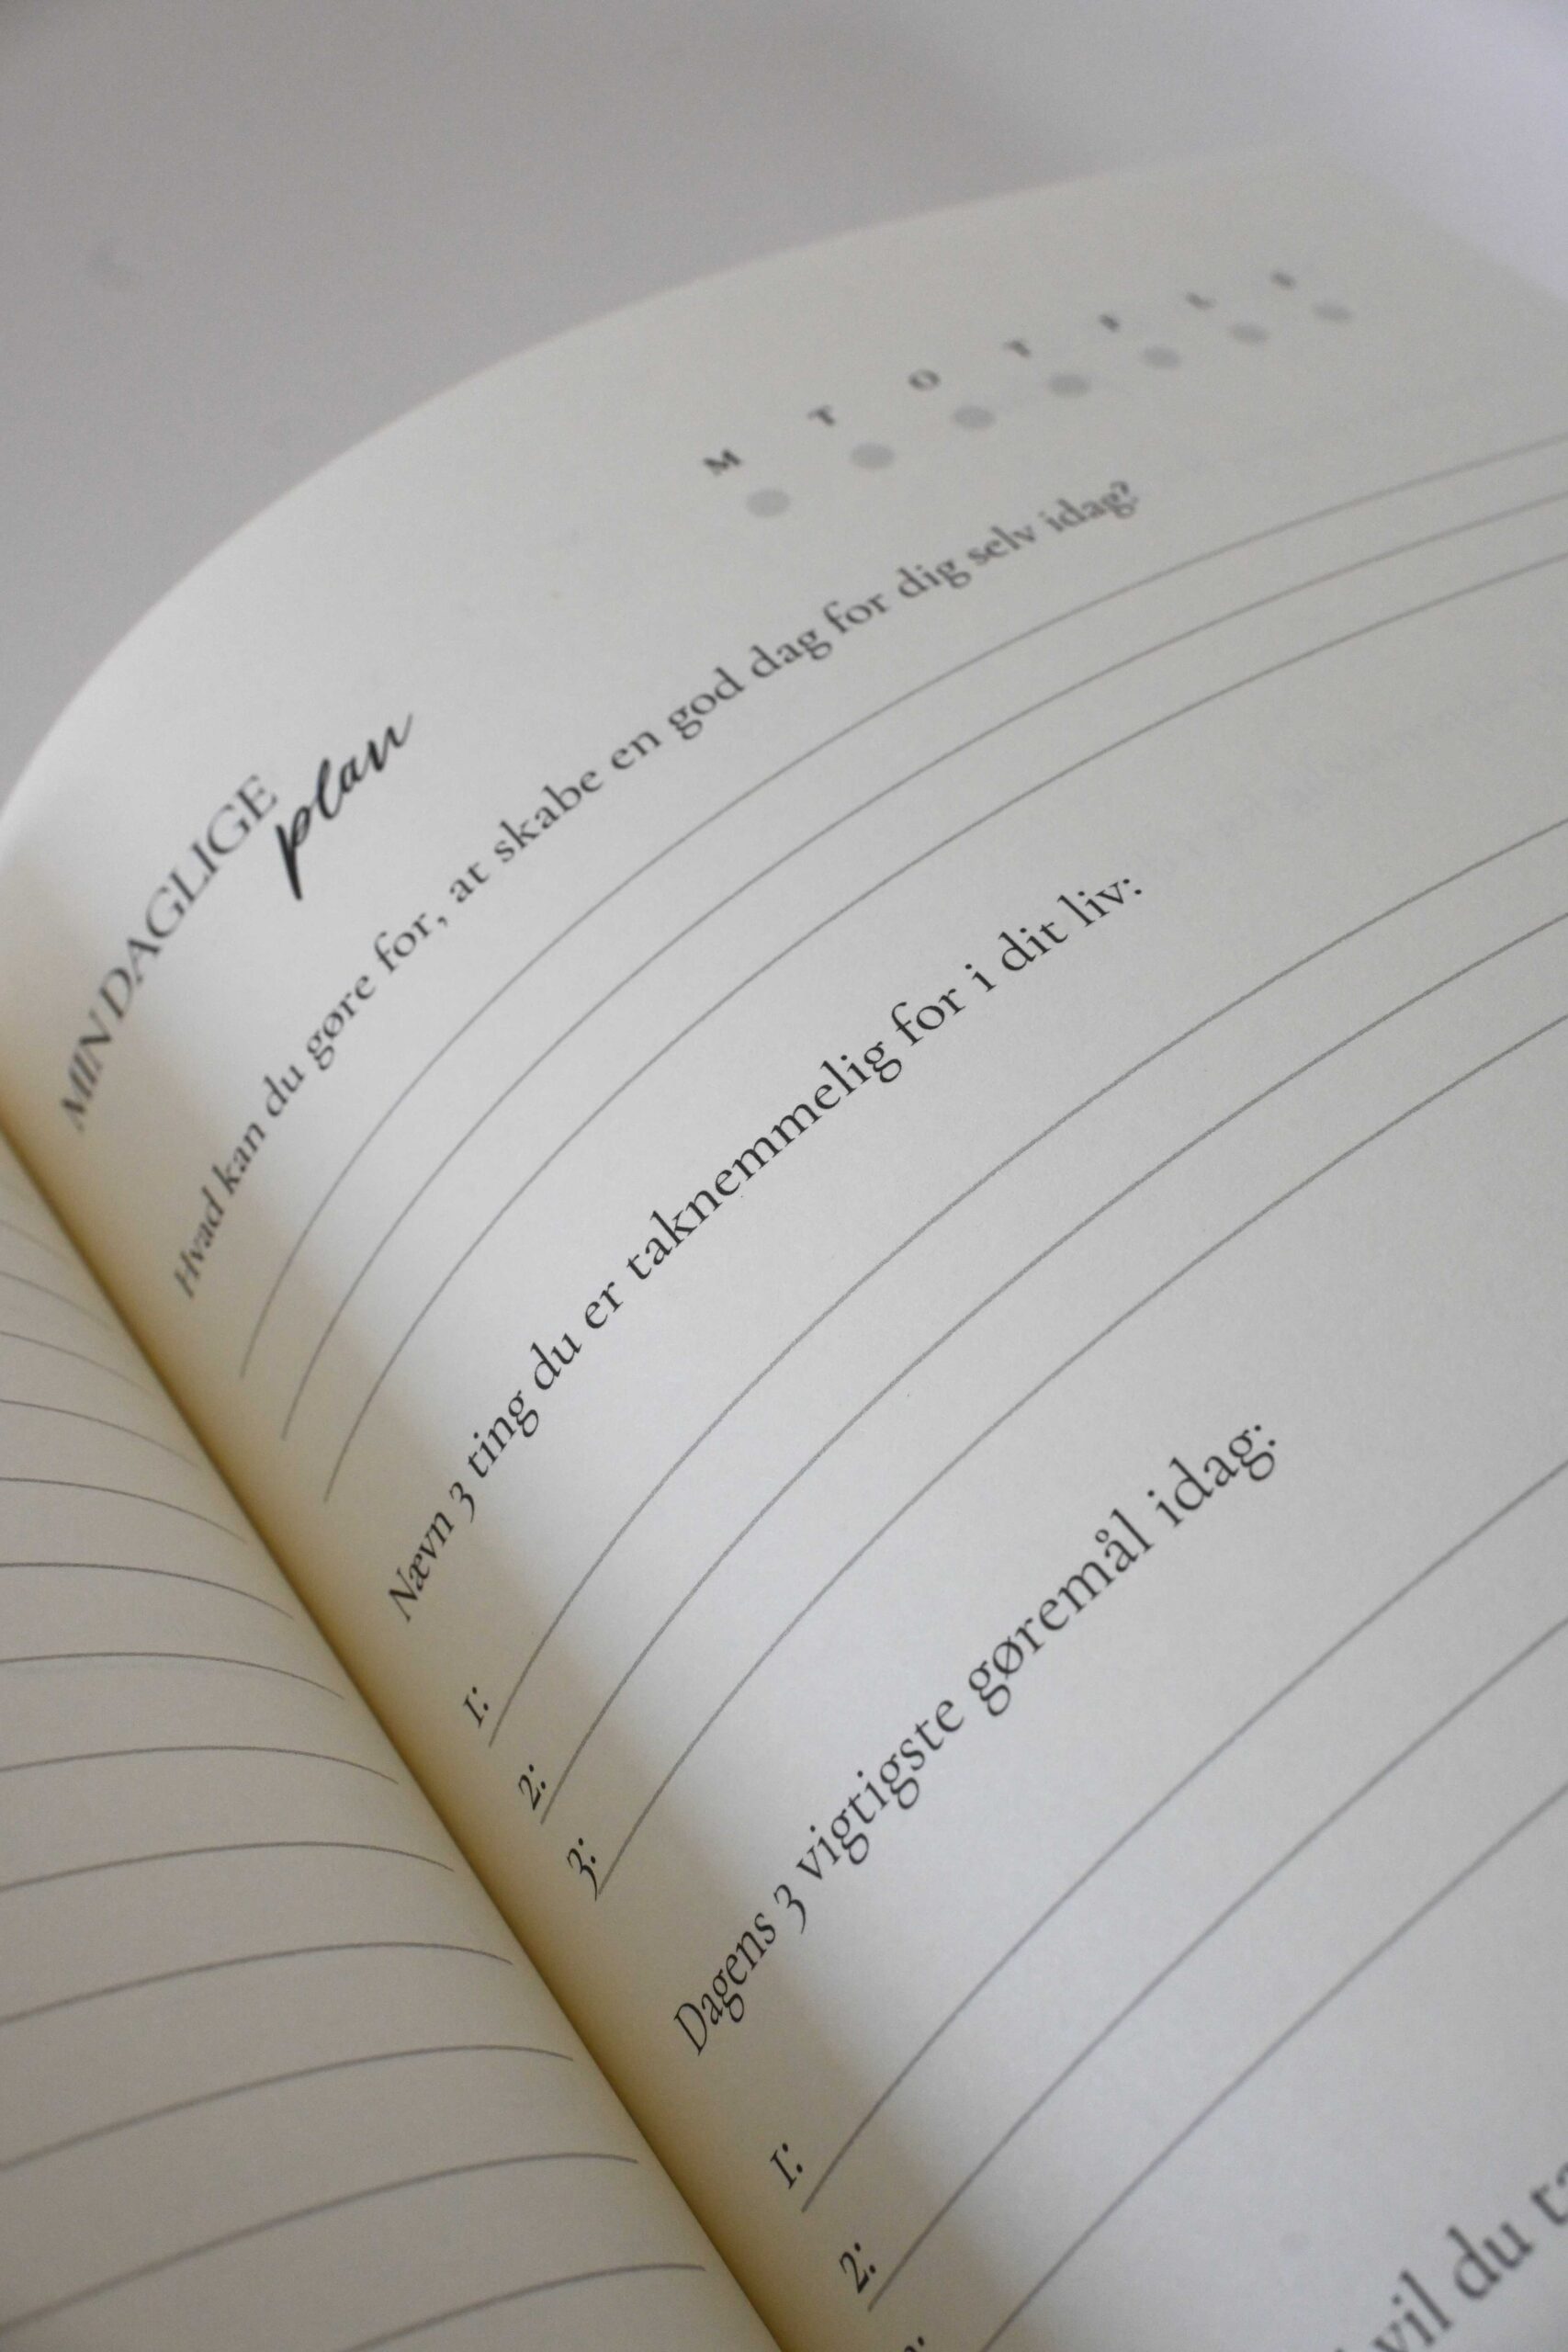 MIN DAGLIGE
plan
M T O T F L S
Hvad kan du gøre for, at skabe en god dag for dig selv idag?
Nævn 3 ting du er taknemmelig for i dit liv:
1:
2:
3:
Dagens 3 vigtigste gøremål idag:
1:
2:
vil du